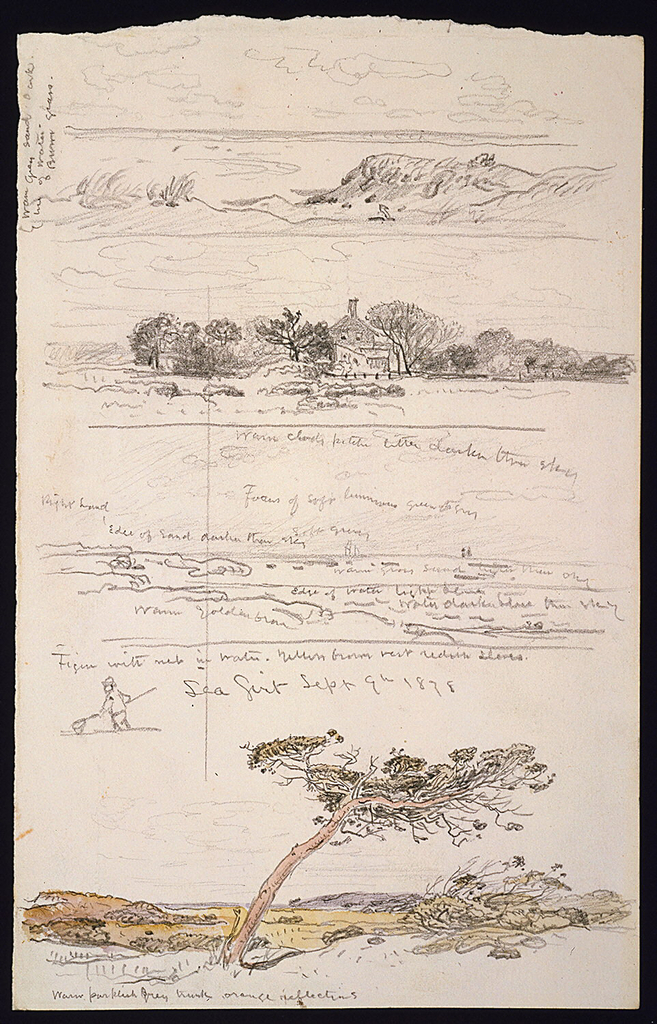 Warm Grey sand Dark
line of water.
& Brown grass.
Warm clouds patches little darker than sky
Focus of soft luminous greenish grey
Right hand
Edge of Sand darker than sky Soft Grey
Warm grass Sand lighter than sky
Edge of water light
Water darker than sky
Warm Golden brown
Figure with net in water. Yellow brown vest reddish sleeves.
Sea Girt Sept 9th 1878
Warm purplish Grey trunk orange reflections